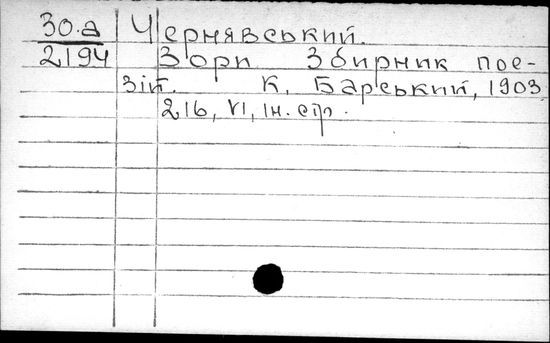 30.а Чернявський.
2194 Зори Збирник пое-
зій. К, Барський, 1903
216, VI, Iн. стр.